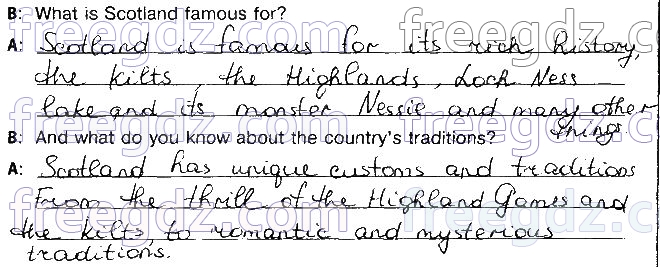 B: What is Scotland famous for?
A: Scotland is famous for its rich history,
the kilts, the Highlands, Loch Ness
lake and its monster Nessie and many other
things
B: And what do you know about the country's traditions?
A: Scotland has unique customs and traditions
From the thrill of the Highland Games and
the kilts, to romantic and mysterious
traditions.